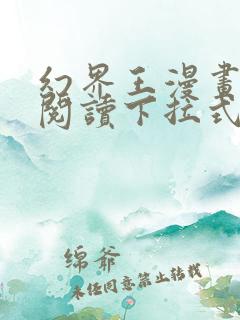 幻界王漫畫
閱讀下拉式
绵爷
未任同意禁止转载